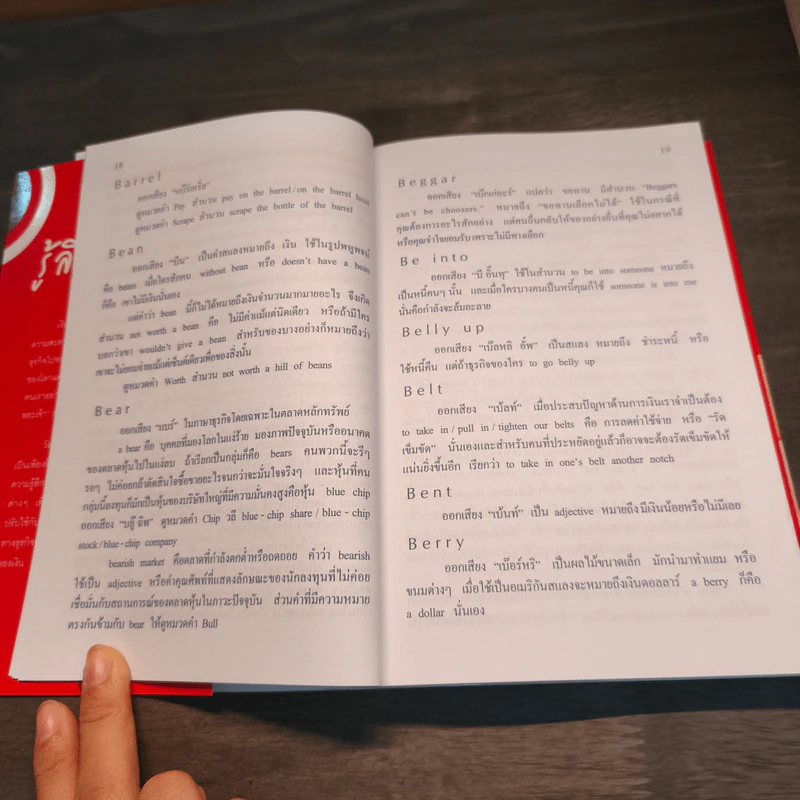 รู้ลึ
18
Barrel
ออกเสียง "แบ๊ร์เร็ล"
ดูหมวดคำ Pay สำนวน pay on the barrel/on the barrel head
ดูหมวดคำ Scrape สำนวน scrape the bottle of the barrel
Bean
ออกเสียง "บีน" เป็นคำสแลงหมายถึง เงิน ใช้ในรูปพหูพจน์
คือ beans เมื่อใครสักคน without bean หรือ doesn't have a bean
ก็คือ เขาไม่มีเงินนั่นเอง
แต่คำว่า bean นี้ก็ไม่ได้หมายถึงเงินจำนวนมากมายอะไร จึงเกิด
สำนวน not worth a bean คือ ไม่มีค่าแม้แต่นิดเดียว หรือถ้ามีใคร
บอกว่าเขา wouldn't give a bean สำหรับของบางอย่างก็หมายถึงว่า
เขาจะไม่ยอมจ่ายแม้แต่เซ็นต์เดียวเพื่อของสิ่งนั้น
ดูหมวดคำ Worth สำนวน not worth a hill of beans
Bear
ออกเสียง "แบร์" ในภาษาธุรกิจโดยเฉพาะในตลาดหลักทรัพย์
a bear คือ บุคคลที่มองโลกในแง่ร้าย มองภาพปัจจุบันหรืออนาคต
ของตลาดหุ้นไปในแง่ลบ ถ้าเรียกเป็นกลุ่มก็คือ bears คนพวกนี้จะรีๆ
รอๆ ไม่ค่อยกล้าตัดสินใจซื้อขายอะไรจนกว่าจะมั่นใจจริงๆ และหุ้นที่คน
กลุ่มนี้ลงทุนก็มักเป็นหุ้นของบริษัทใหญ่ที่มีความมั่นคงสูงคือหุ้น blue chip
ออกเสียง "บลู๊ ฉิพ" ดูหมวดคำ Chip วลี blue-chip share/blue-chip
stock/blue-chip company
bearish market คือตลาดที่กำลังตกต่ำหรือถดถอย คำว่า bearish
ใช้เป็น adjective หรือคำคุณศัพท์ที่แสดงลักษณะของนักลงทุนที่ไม่ค่อย
เชื่อมั่นกับสถานการณ์ของตลาดหุ้นในภาวะปัจจุบัน ส่วนคำที่มีความหมาย
ตรงกันข้ามกับ bear ให้ดูหมวดคำ Bull
19
Beggar
ออกเสียง "เบ๊กเก่อะร์" แปลว่า ขอทาน มีสำนวน "Beggars
can't be choosers." หมายถึง "ขอทานเลือกไม่ได้" ใช้ในกรณีที่
คุณต้องการอะไรสักอย่าง แต่คนอื่นกลับให้ของอย่างอื่นที่คุณไม่อยากได้
หรือคุณจำใจยอมรับเพราะไม่มีทางเลือก
Be into
ออกเสียง "บี อิ๊นทุ" ใช้ในสำนวน to be into someone หมายถึง
เป็นหนี้คนๆ นั้น และเมื่อใครบางคนเป็นหนี้คุณก็ใช้ someone is into me
นั่นคือกำลังจะล้มละลาย
Belly up
ออกเสียง "เบ๊ลหลิ อั๊พ" เป็นสแลง หมายถึง ชำระหนี้ หรือ
ใช้หนี้คืน แต่ถ้าธุรกิจของใคร to go belly up
Belt
ออกเสียง "เบ้ลท์" เมื่อประสบปัญหาด้านการเงินเราจำเป็นต้อง
to take in/pull in/tighten our belts คือ การลดค่าใช้จ่าย หรือ "รัด
เข็มขัด" นั่นเองและสำหรับคนที่ประหยัดอยู่แล้วก็อาจจะต้องรัดเข็มขัดให้
แน่นยิ่งขึ้นอีก เรียกว่า to take in one's belt another notch
Bent
ออกเสียง "เบ้นท์" เป็น adjective หมายถึงมีเงินน้อยหรือไม่มีเลย
Berry
ออกเสียง "เบ๊อร์หริ" เป็นผลไม้ขนาดเล็ก มักนำมาทำแยม หรือ
ขนมต่างๆ เมื่อใช้เป็นอมริกันสแลงจะหมายถึงเงินดอลลาร์ a berry ก็คือ
a dollar นั่นเอง